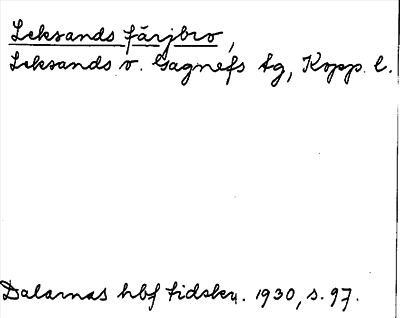 Leksands färjbro,
Leksands o. Gagnefs tg, Kopp. l.
Dalarnas hbf tidskr. 1930, s. 97.